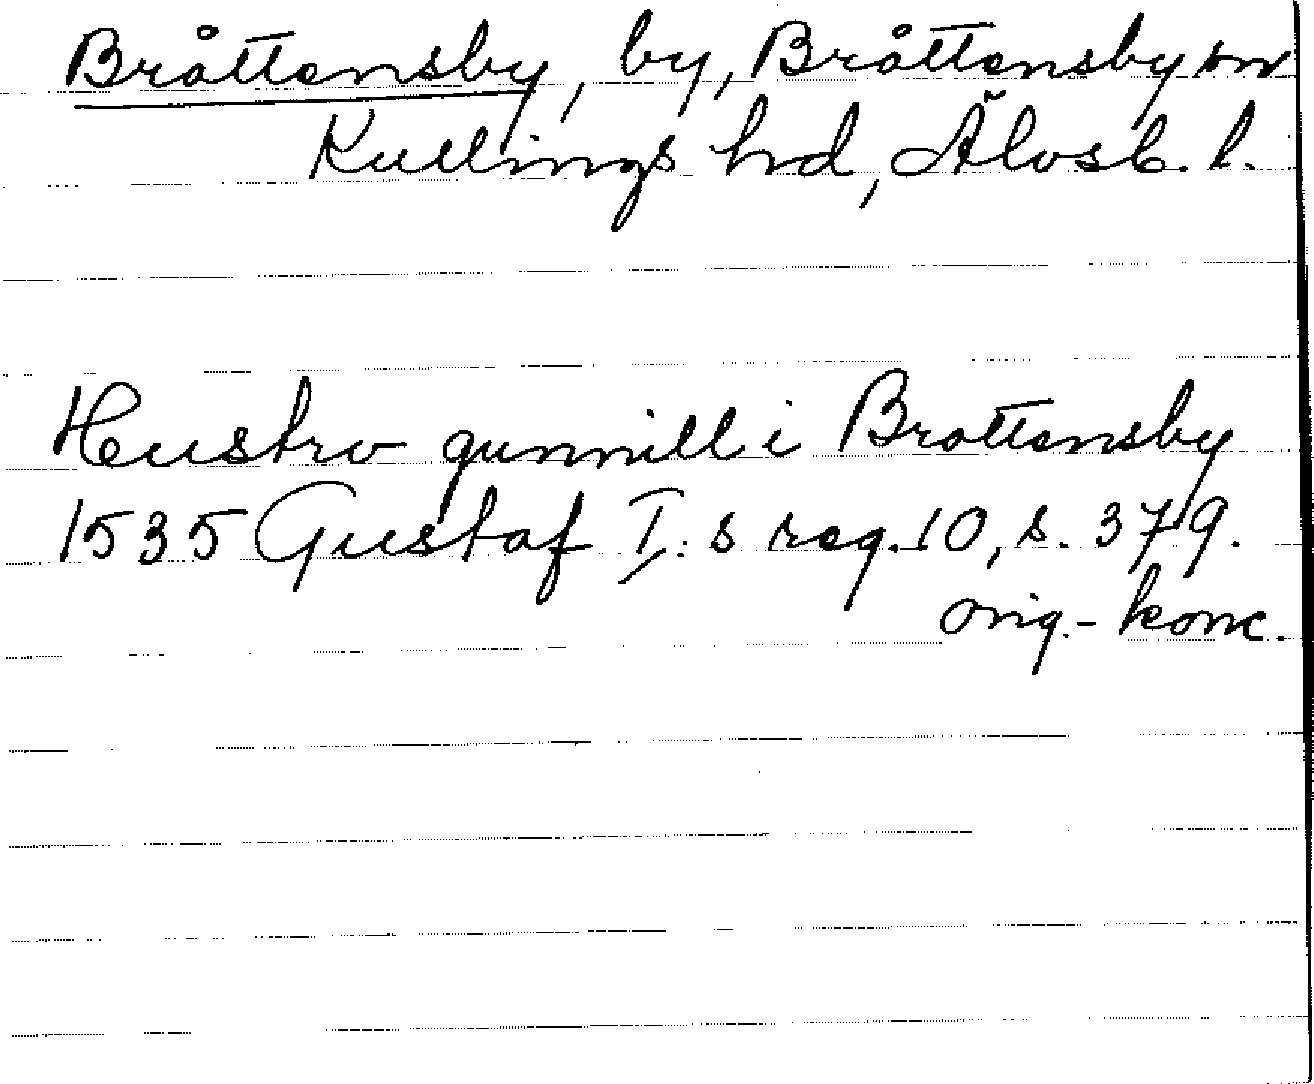 Bråttensby, by, Bråttensby sn
Kullings hrd, Älvsb. l.
Hustro gunnill i Brattensby
1535 Gustaf I:s reg. 10, s. 379.
orig.-konc.